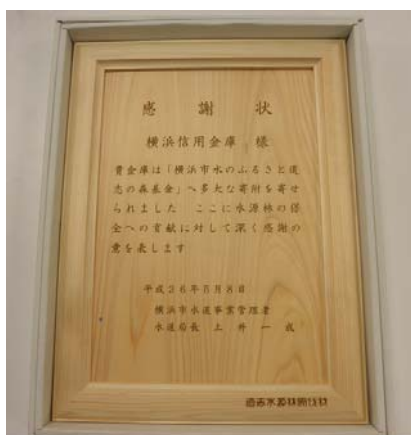 感謝状
横浜信用金庫 様
貴金庫は「横浜市水のふるさと道
志の森基金」へ多大な寄附を寄せ
られました ここに水源林の保
全への貢献に対して深く感謝の
意を表します
平成26年5月8日
横浜市水道事業管理者
水道局長 土井一成
道志水源林間伐材